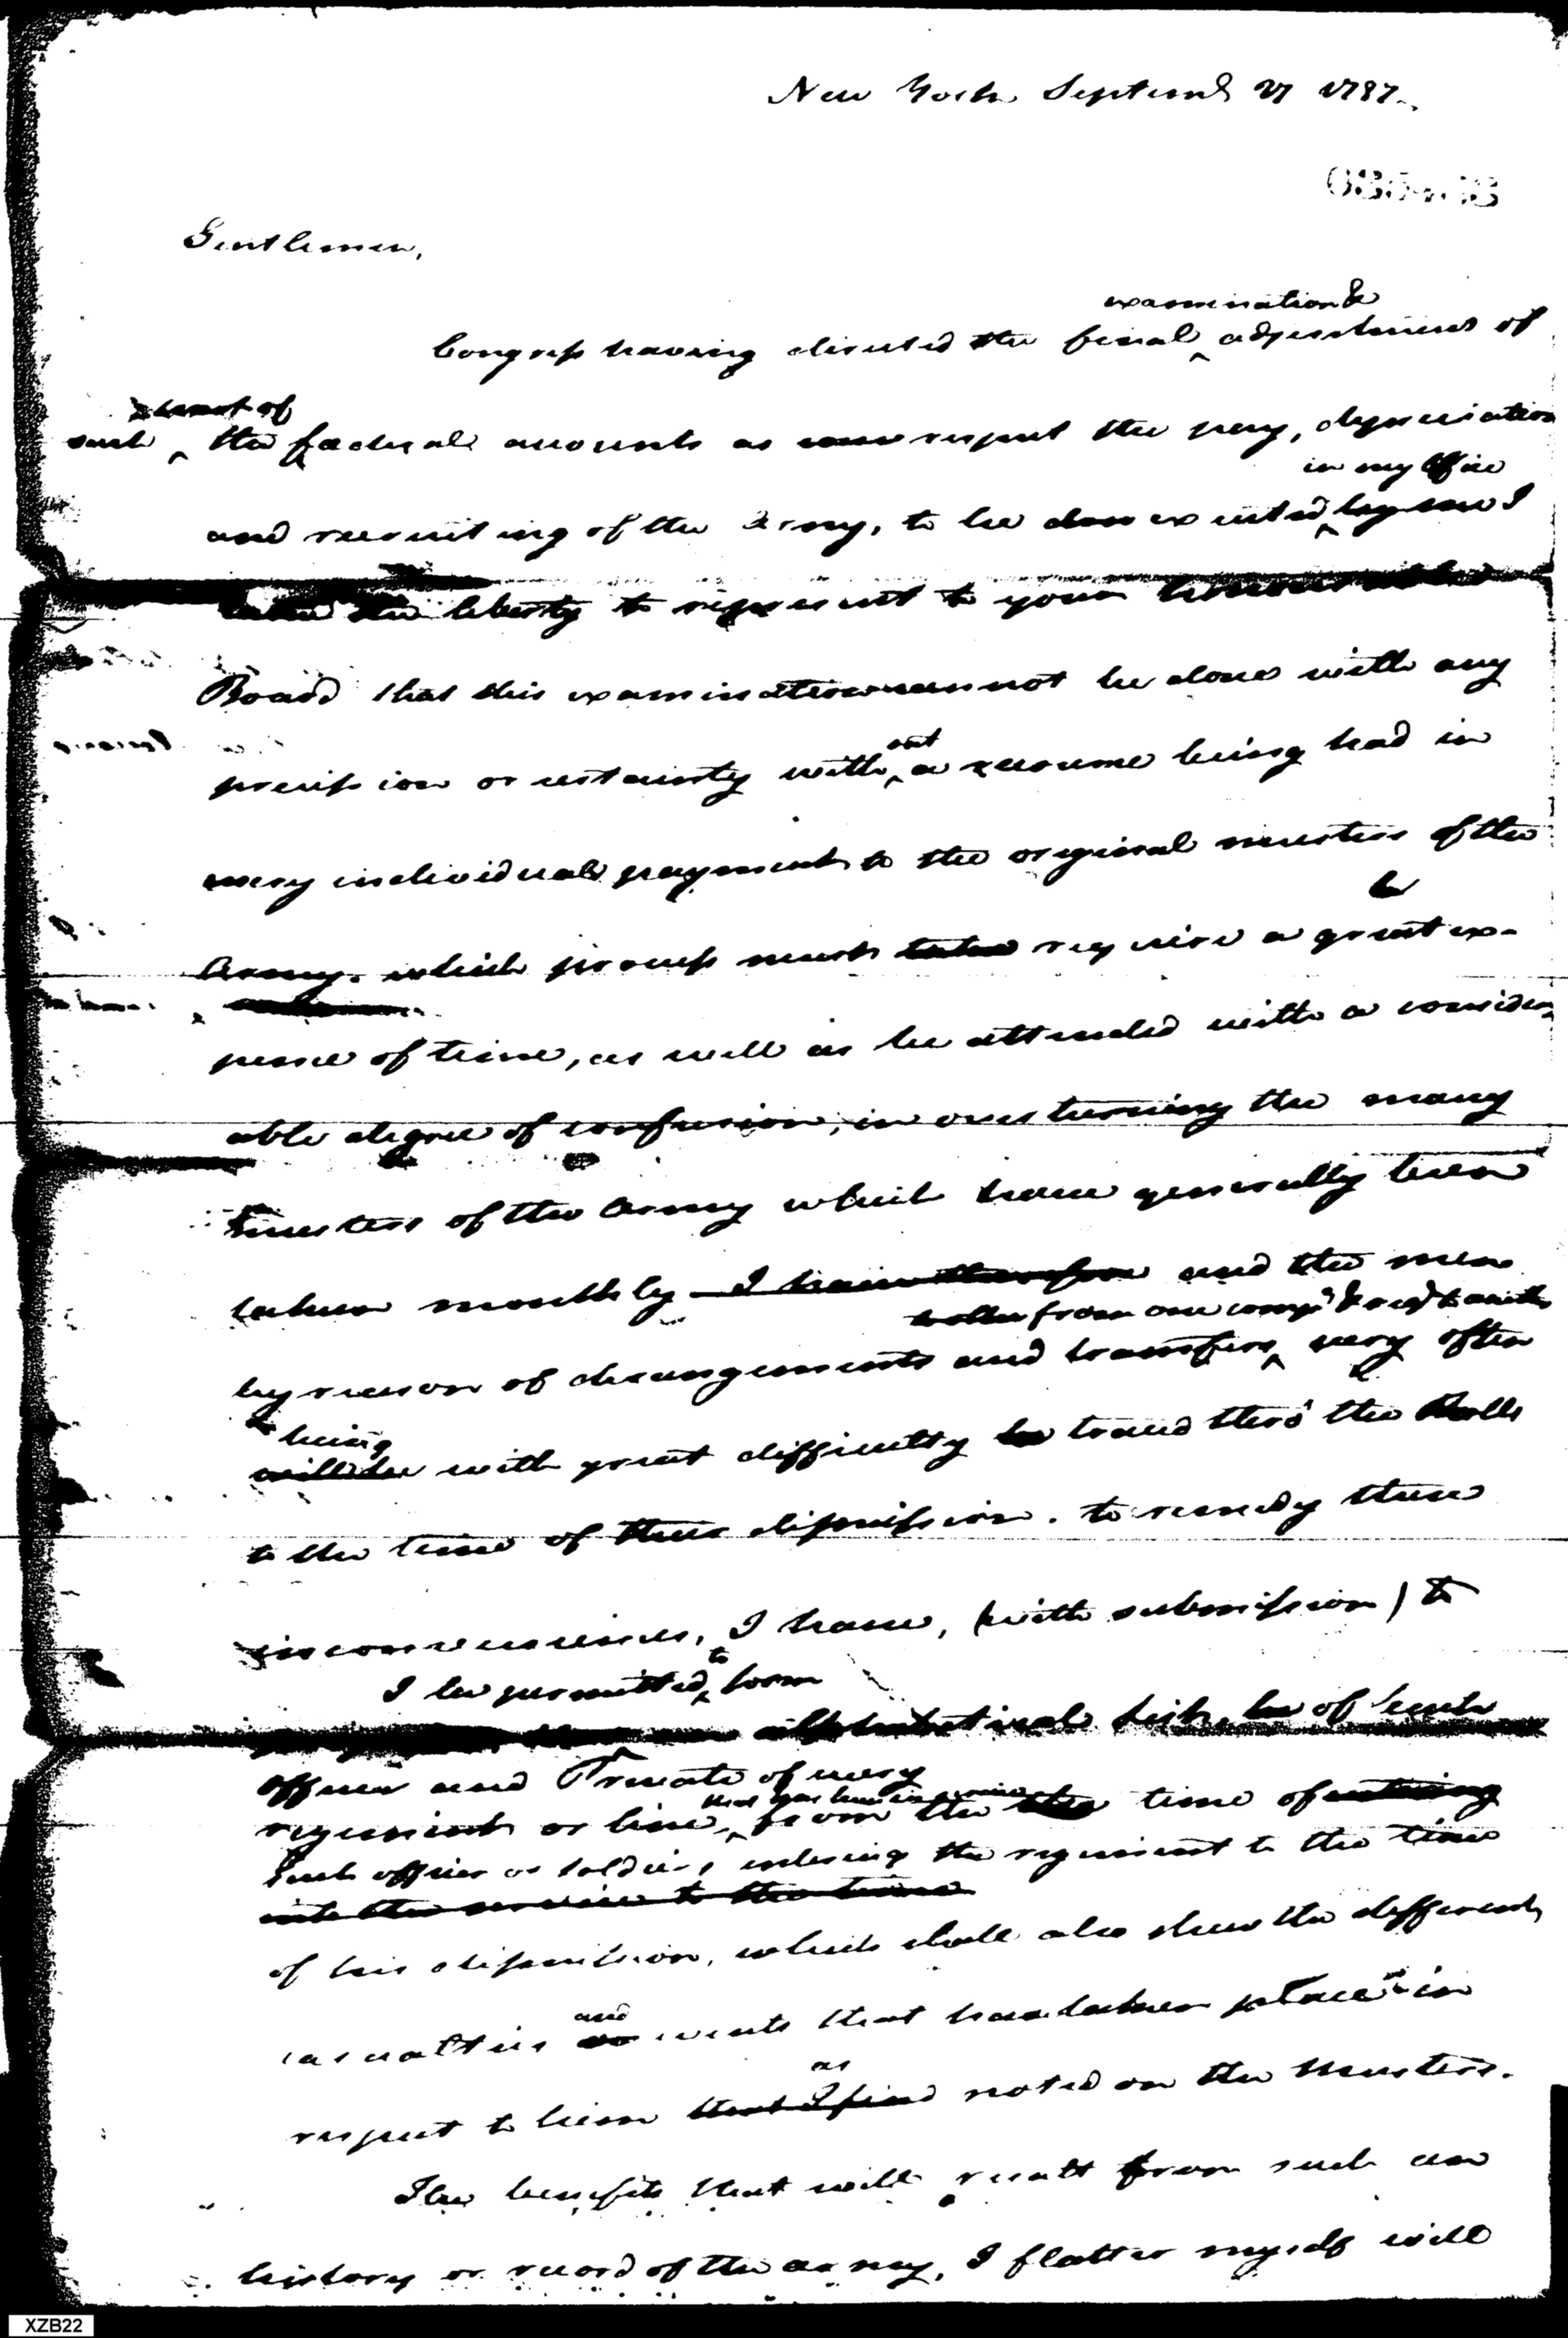 New York Septemb 27 1787
Gentlemen,
examination &
Congress having directed the final adjustment of
of
such the federal accounts as respect the pay, depreciation
in my Office
and recruiting of the Army, to be executed by me I
take the liberty to represent to your honourable
Board that this examination cannot be done with any
out
precission or certainty with a recourse being had in
every individual payment to the original musters of the
Army. which process must take require a great ex-
pence of time, as well as be attended with a consider-
able degree of confusion, in overturning the many
musters of the Army which have generally been
taken monthly I have therefore and the men
from one compy & regt to anoth
by reason of derangements and transfers very often
being
will be with great difficulty be traced thro' the Rolls
to the time of their dismission. to remedy these
inconveniences, I have, (with submission) to
I be permitted to form
alphabetical list of each
officer and Private of every
that has been in service
regiment or line, from the time of entering
such officer or soldier, entering the regiment to the time
into the service to the time
of his dismission, which shall also shew the different
and
casualties or events that have taken place in
as
respect to him that I find noted on the Musters.
The benefits that will result from such an
history or record of the army, I flatter myself will
XZB22